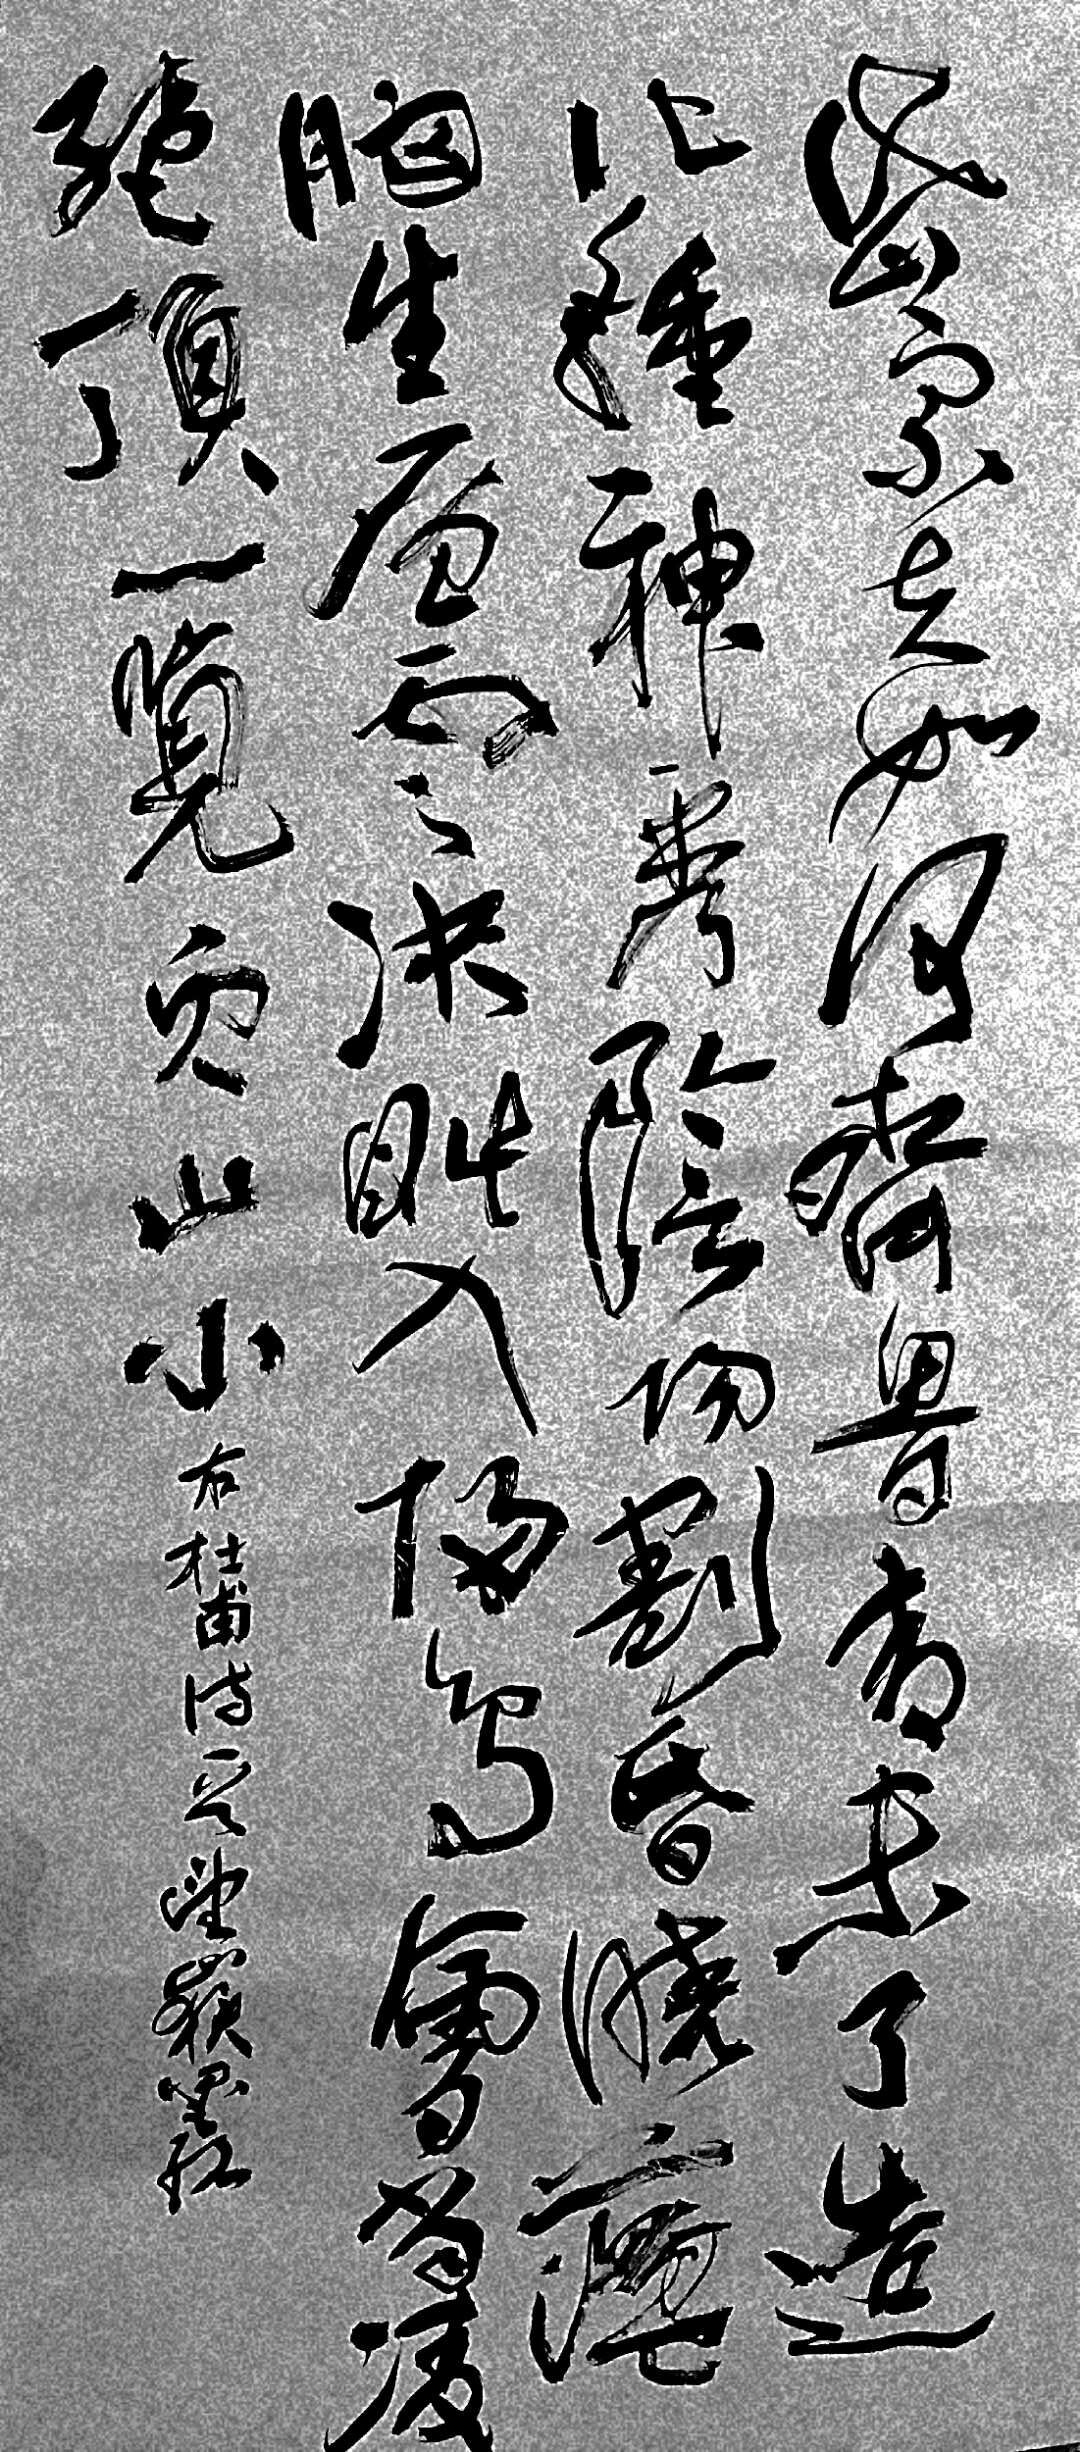 岱宗夫如何齊魯青未了造
化鍾神秀陰陽割昏曉蕩
胸生層雲決眥入歸鳥會當凌
絕頂一覽眾山小 右杜甫詩望嶽墨